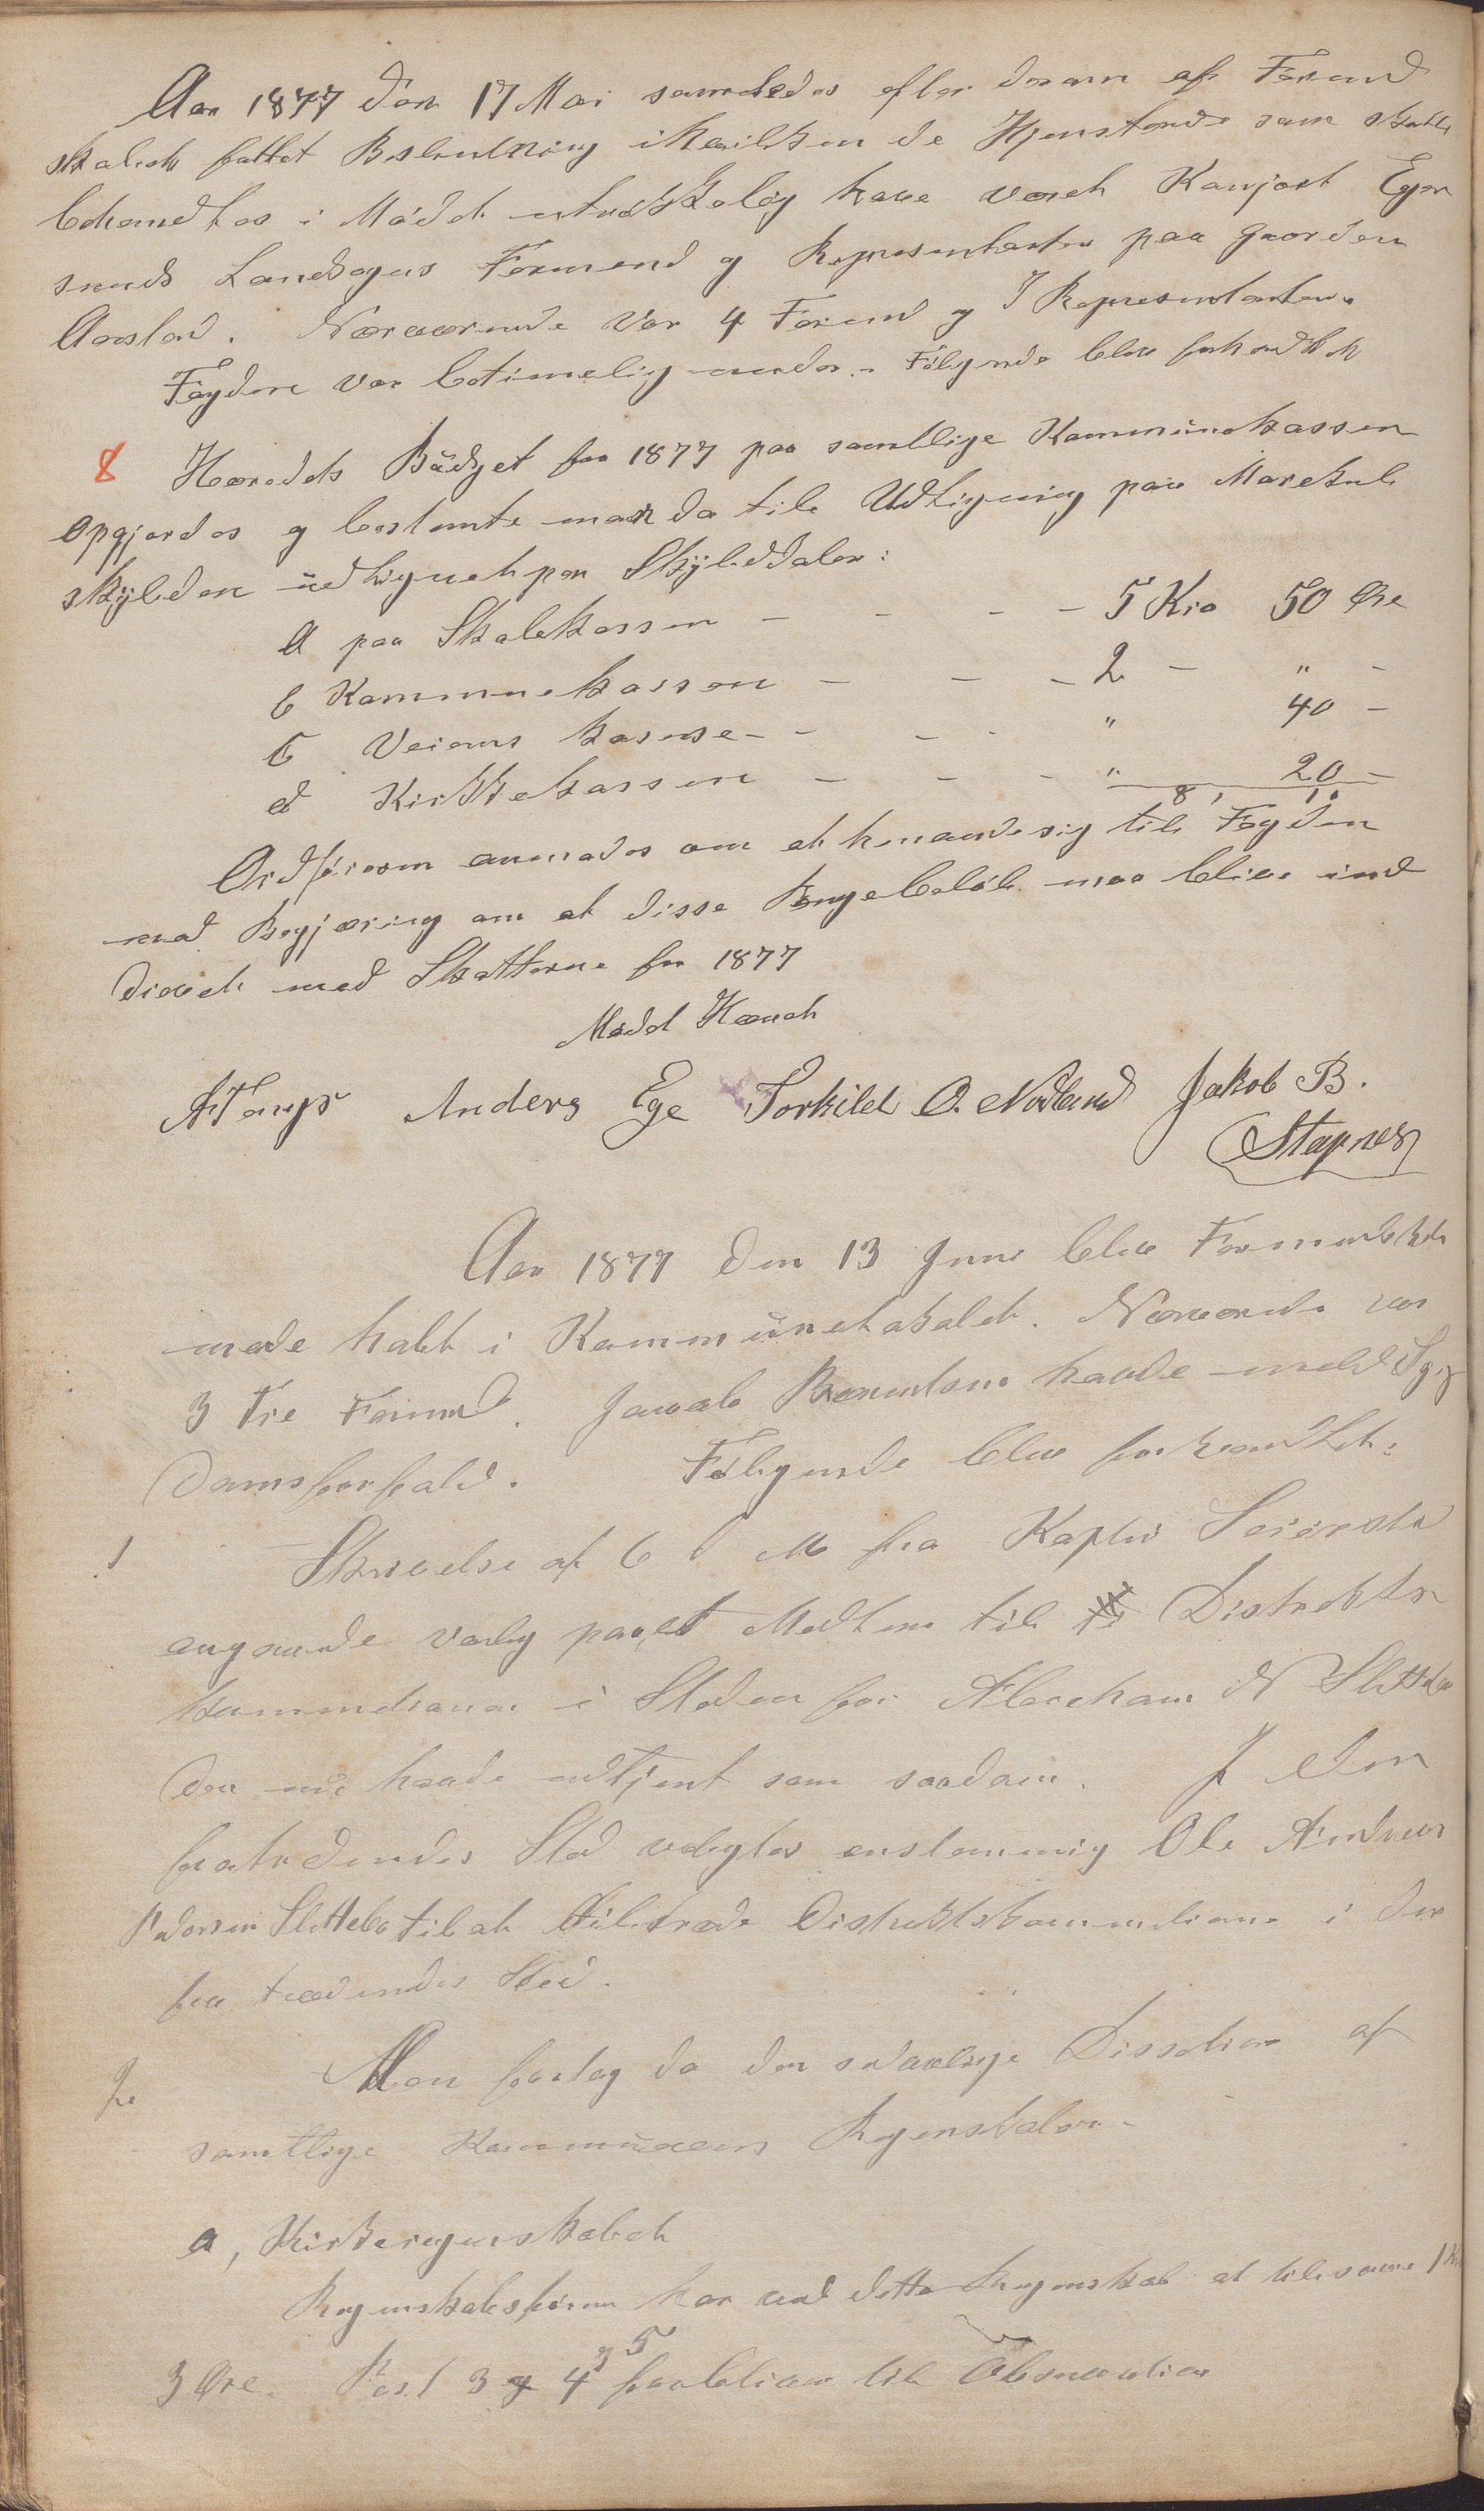 Aar 1877 den 17 Mai samledes efter deram af Formand
skabets fattet Beslutning i hvilken de Gjenstande som skulle
behandles i Mødet udtrykkelig have været Kunjort Eger
sunds Landsogns Formend og Representanter paa Gaarden
Aarstad. Nærværende Var 4 Formend og 7 Representanter.
Fogden var betimelig under. Følgende blev forhandlet
8 Heredets Büdget for 1877 paa samtlige Kommünekassen
opgjordes og bestemte man da til Udligning paa Matrikul
skylden üdlignet per Skylddaler:
a paa Skolekassen - - - - 5 Kro 50 Øre
b Kommunekassen - - - 2 - " -
c Veiens kasse - - - - " 40 -
d Kirkekassen - - - " 20 -
8, 10
Ordføreren anmodes om at henvende sig til Fogden
med Begjæring om at disse Pengebeløb maa blive ind
drevet med Skatterne for 1877
Mødet Hævet
A Tengs Anders Ege Torkild O. Nodland Jakob B.
Stapnes
Aar 1877 den 13 Juni blev Formandskabs
møde holt i Kommünelokalet. Nærværende var
3 Tre Formend. Jacob Berentsen havde meldt Syg
domsforfald. Følgende blev forhandlet:
1 Skrivelse af 6 d M fra Kaptei Seiersted
angaaende valg paa et Medlem til Distrikts
kommisionen i Steden for Abraham N Slettebø
der nü havde udtjent som saadan. I den
fratrædendes Sted valgtes enstemmig Ole Andreas
Pedersen Slettebø til at tiltræde Distriktskommisionen i den
fra trædendes Sted.
2. Man foretog da den sedvanlige Dissetion af
samtlige Kommünens Regnskaber.
a, Kirkeregnskabet
Regnskabsføreren har ved dette Regnskab at tilsvare 1 Kr
3 Øre. Post 3 og 4 og 5 forbliver til Observation